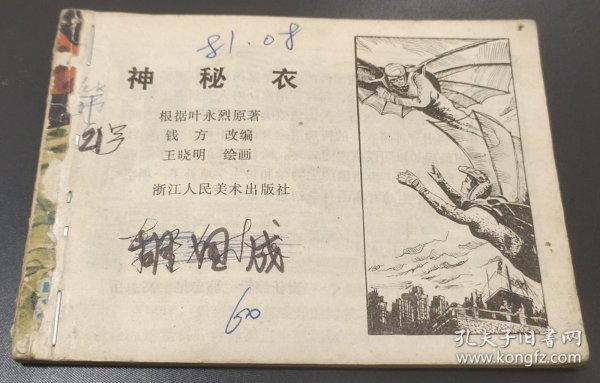 81.08
神秘衣
根据叶永烈原著
钱方 改编
王晓明 绘画
浙江人民美术出版社
60
第
21号
孔夫子旧书网
www.kongfz.com